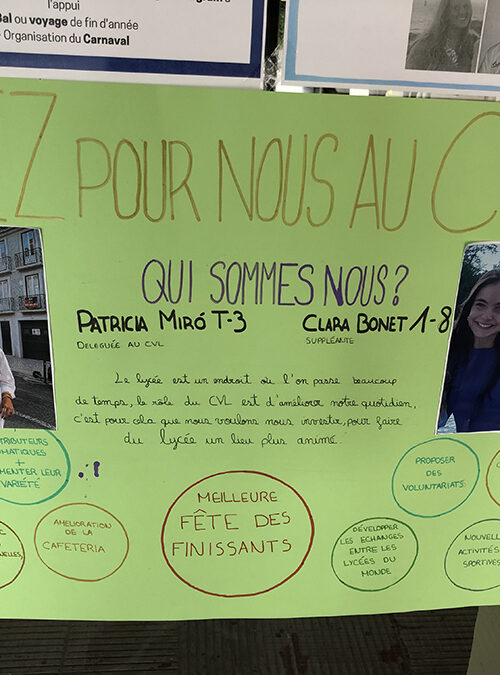 l'appui
Bal ou voyage de fin d'année
Organisation du Carnaval
EZ POUR NOUS AU C
QUI SOMMES NOUS?
PATRICIA MIRÓ T-3
CLARA BONET 1-8
DELEGUÉE AU CVL
SUPPLÉANTE
Le lycée est un endroit où l'on passe beaucoup
de temps, le rôle du CVL est d'améliorer notre quotidien,
c'est pour cela que nous voulons nous investir, pour faire
du lycée un lieu plus animé.
TRIBUTEURS
MATIQUES
+
MENTER LEUR
VARIÉTÉ
PROPOSER
DES
VOLUNTARIATS
AMELIORATION
DE LA
CAFETERIA
MEILLEURE
FÊTE DES
FINISSANTS
DÉVELOPPER
LES ECHANGES
ENTRE LES
LYCÉES DU
MONDE
NOUVELL
ACTIVITÉS
SPORTIVES
NELLES